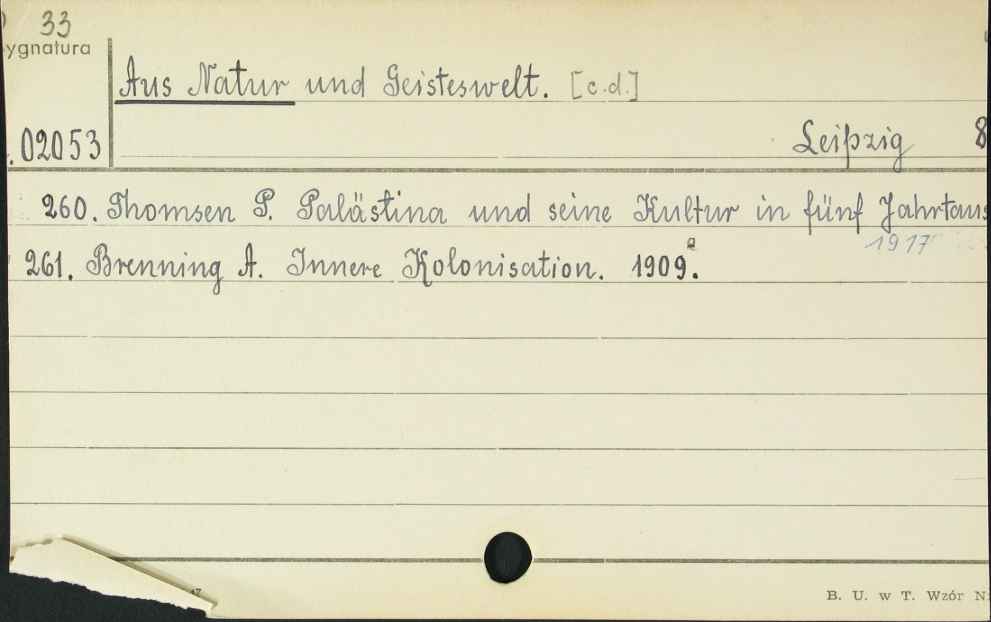 33
ygnatura
Aus Natur und Geisteswelt. [c.d.]
.02053
Leipzig 8
260. Thomsen P. Palästina und seine Kultur in fünf Jahrtaus
1917
261. Brenning A. Innere Kolonisation. 1909.
B. U. w T. Wzór N